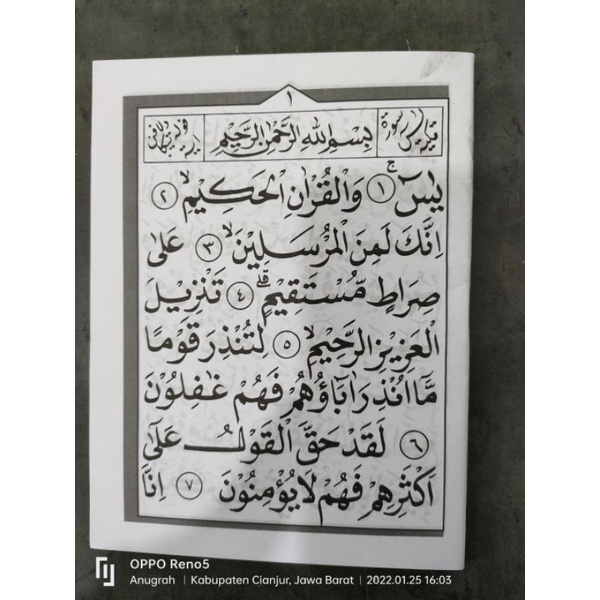 ١
سورة يس
بِسْمِ اللهِ الرَّحْمٰنِ الرَّحِيْمِ
يٰسۤ ۚ ١ وَالْقُرْاٰنِ الْحَكِيْمِۙ ٢
اِنَّكَ لَمِنَ الْمُرْسَلِيْنَۙ ٣ عَلٰى
صِرَاطٍ مُّسْتَقِيْمٍۗ ٤ تَنْزِيْلَ
الْعَزِيْزِ الرَّحِيْمِۙ ٥ لِتُنْذِرَ قَوْمًا
مَّآ اُنْذِرَ اٰبَاۤؤُهُمْ فَهُمْ غٰفِلُوْنَ
٦ لَقَدْ حَقَّ الْقَوْلُ عَلٰٓى
اَكْثَرِهِمْ فَهُمْ لَا يُؤْمِنُوْنَ ٧ اِنَّا
OPPO Reno5
Anugrah | Kabupaten Cianjur, Jawa Barat | 2022.01.25 16:03